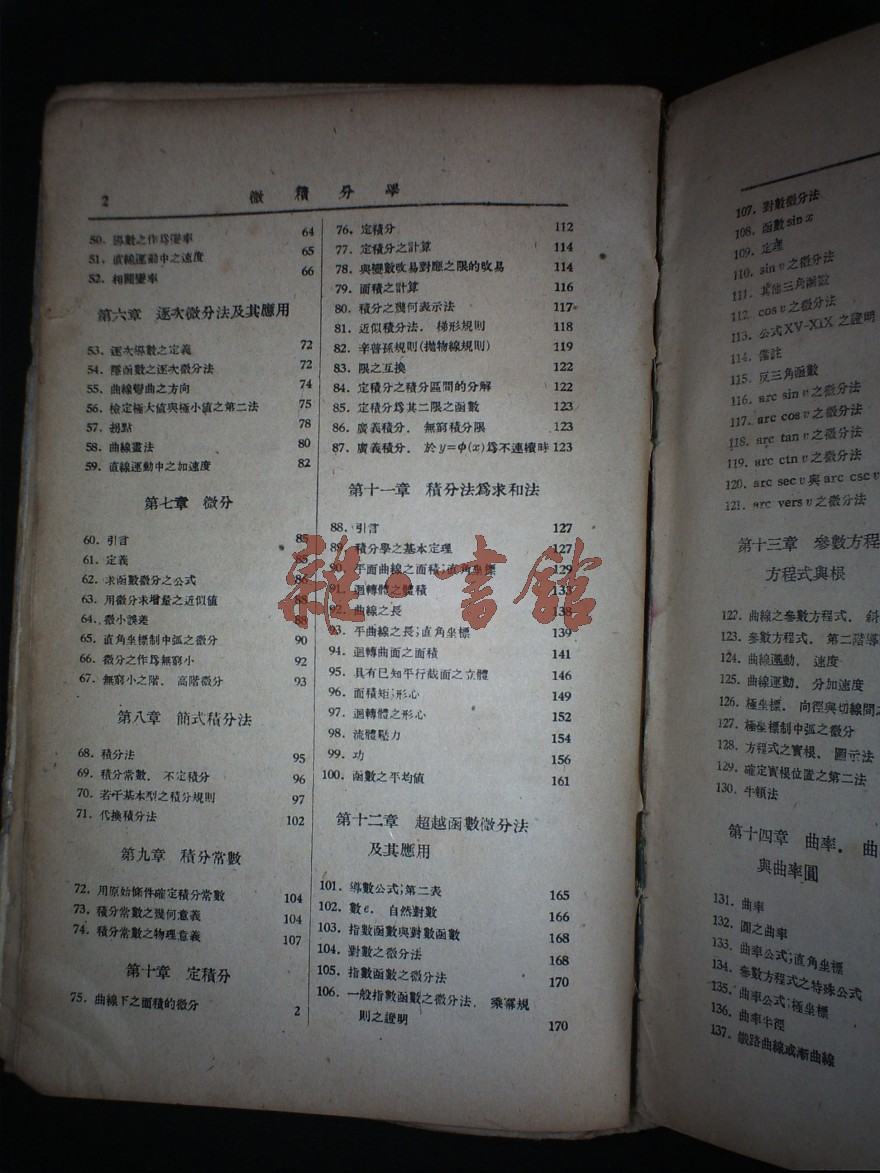 2 微積分學
50. 導數之作爲變率 64
51. 直線運動中之速度 65
52. 相關變率 66
第六章 逐次微分法及其應用
53. 逐次導數之定義 72
54. 隱函數之逐次微分法 72
55. 曲線彎曲之方向 74
56. 檢定極大値與極小値之第二法 75
57. 拐點 78
58. 曲線畫法 80
59. 直線運動中之加速度 82
第七章 微分
60. 引言 85
61. 定義 85
62. 求函數微分之公式 86
63. 用微分求增量之近似値 88
64. 微小誤差 88
65. 直角坐標制中弧之微分 90
66. 微分之作爲無窮小 92
67. 無窮小之階．高階微分 93
第八章 簡式積分法
68. 積分法 95
69. 積分常數．不定積分 96
70. 若干基本型之積分規則 97
71. 代換積分法 102
第九章 積分常數
72. 用原始條件確定積分常數 104
73. 積分常數之幾何意義 104
74. 積分常數之物理意義 107
第十章 定積分
75. 曲線下之面積的微分 2
76. 定積分 112
77. 定積分之計算 114
78. 與變數改易對應之限的改易 114
79. 面積之計算 116
80. 積分之幾何表示法 117
81. 近似積分法．梯形規則 118
82. 辛普孫規則(拋物線規則) 119
83. 限之互換 122
84. 定積分之積分區間的分解 122
85. 定積分爲其二限之函數 123
86. 廣義積分．無窮積分限 123
87. 廣義積分．於 y=ϕ(x) 爲不連續時 123
第十一章 積分法爲求和法
88. 引言 127
89. 積分學之基本定理 127
90. 平面曲線之面積;直角坐標 129
91. 迴轉體之體積 133
92. 曲線之長 138
93. 平曲線之長;直角坐標 139
94. 迴轉曲面之面積 141
95. 具有已知平行截面之立體 146
96. 面積矩;形心 149
97. 迴轉體之形心 152
98. 流體壓力 154
99. 功 156
100. 函數之平均値 161
第十二章 超越函數微分法
及其應用
101. 導數公式;第二表 165
102. 數 e．自然對數 166
103. 指數函數與對數函數 168
104. 對數之微分法 168
105. 指數函數之微分法 170
106. 一般指數函數之微分法．乘冪規
則之證明 170
雜·書館
107. 對數微分法
108. 函數 sin x
109. 定理
110. sin v 之微分法
111. 其他三角函數
112. cos v 之微分法
113. 公式 XV-XIX 之證明
114. 備註
115. 反三角函數
116. arc sin v 之微分法
117. arc cos v 之微分法
118. arc tan v 之微分法
119. arc ctn v 之微分法
120. arc sec v 與 arc csc v
121. arc vers v 之微分法
第十三章 參數方程
方程式與根
122. 曲線之參數方程式．斜
123. 參數方程式．第二階導
124. 曲線運動．速度
125. 曲線運動．分加速度
126. 極坐標．向徑與切線間之
127. 極坐標制中弧之微分
128. 方程式之實根．圖示法
129. 確定實根位置之第二法
130. 牛頓法
第十四章 曲率．曲
與曲率圓
131. 曲率
132. 圓之曲率
133. 曲率公式;直角坐標
134. 參數方程式之特殊公式
135. 曲率公式;極坐標
136. 曲率半徑
137. 鐵路曲線或漸曲線